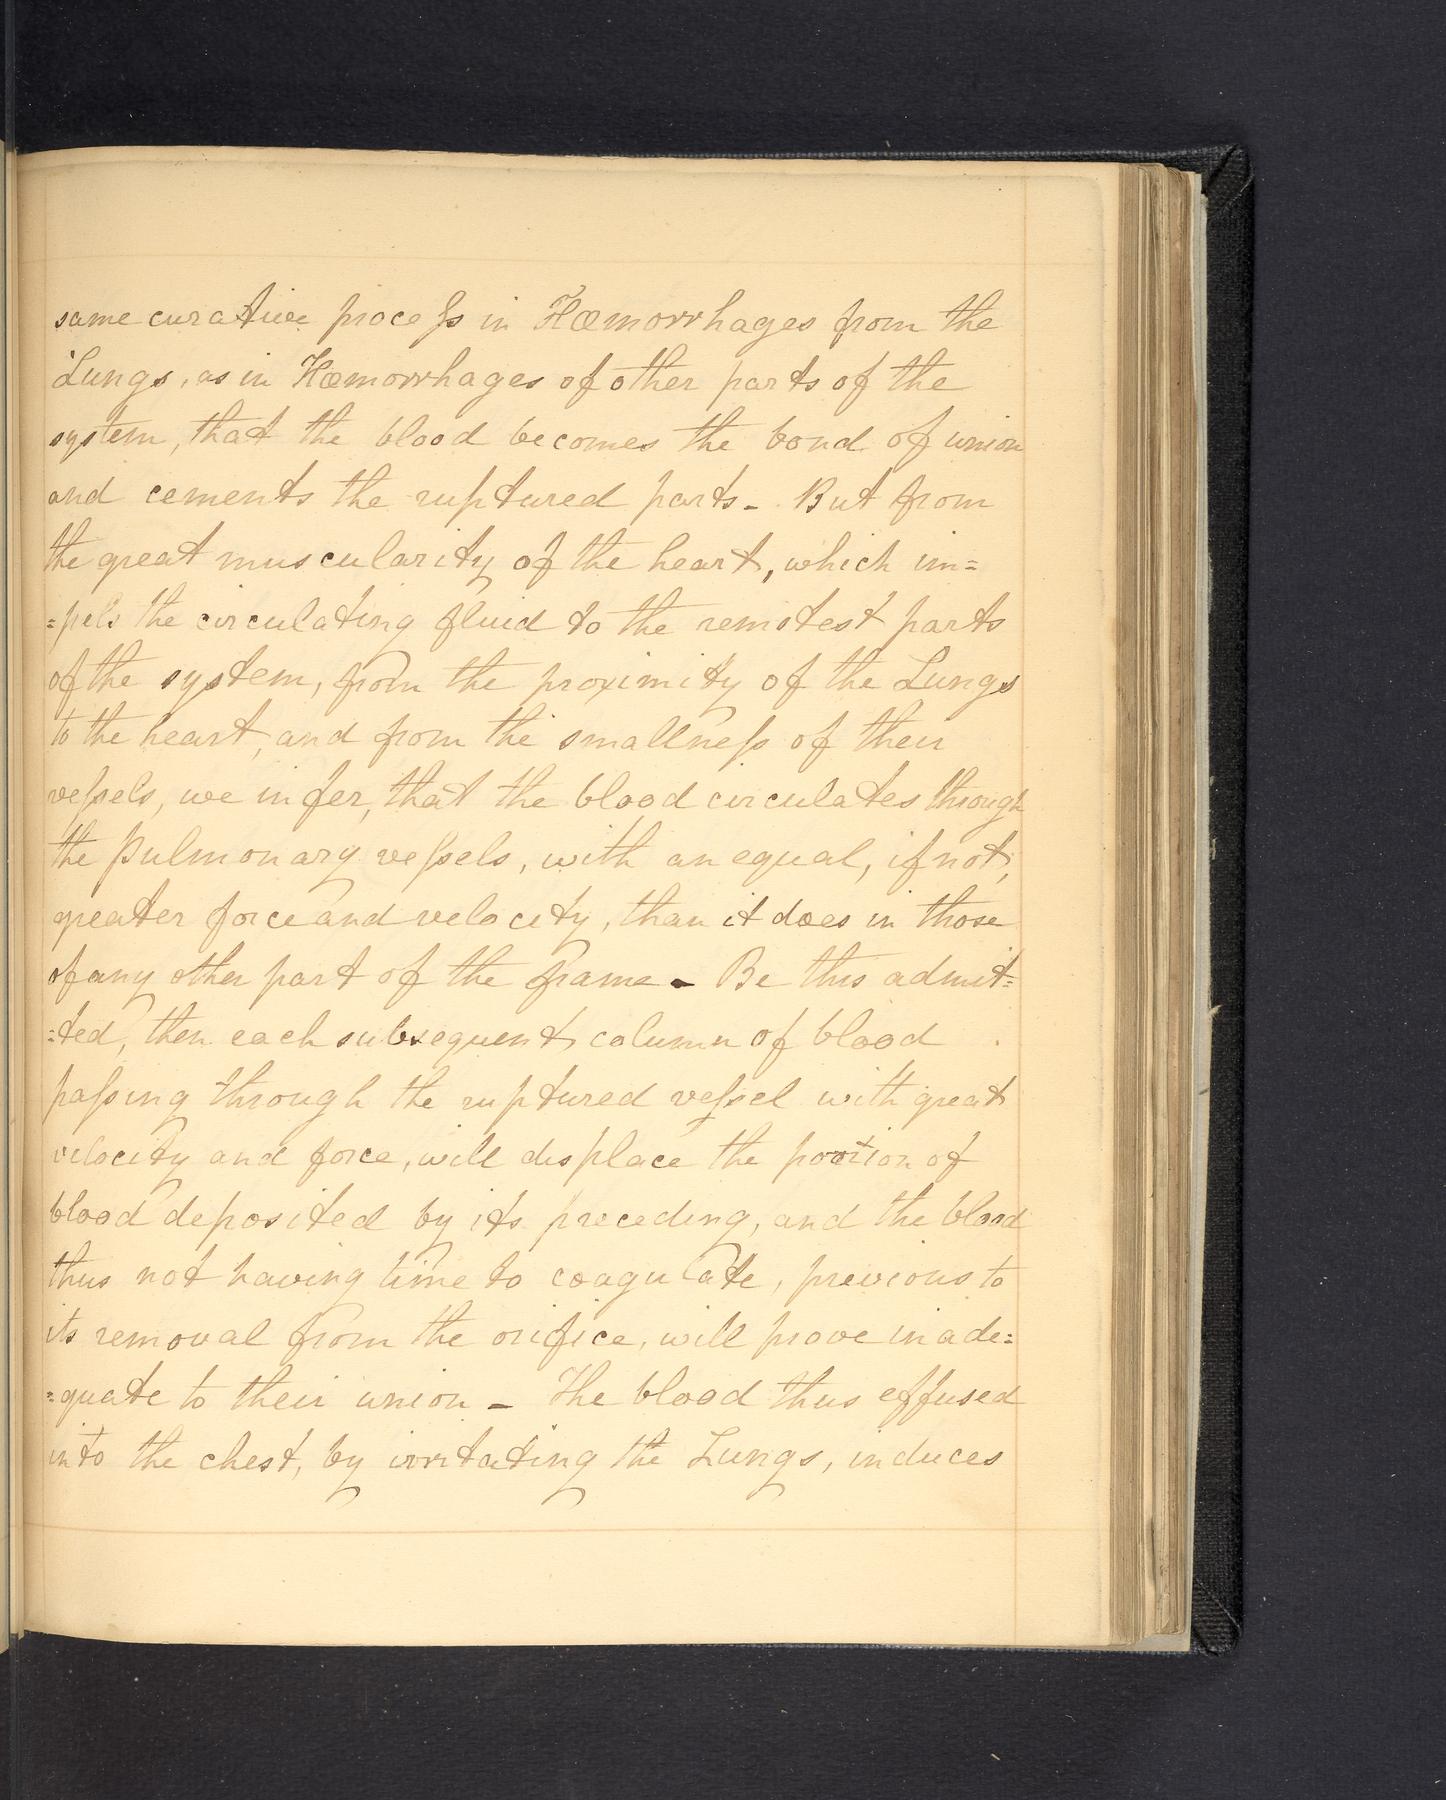 same curative process in Hæmorrhages from the
Lungs, as in Hæmorrhages of other parts of the
system, that the blood becomes the bond of union
and cements the ruptured parts - But from
the great muscularity of the heart, which im=
=pels the circulating fluid to the remotest parts
of the system, from the proximity of the Lungs
to the heart, and from the smallness of their
vessels, we infer, that the blood circulates through
the pulmonary vessels, with an equal, if not,
greater force and velocity, than it does in those
of any other part of the frame - Be this admit=
=ted, then each subsequent column of blood
passing through the ruptured vessel with great
velocity and force, will displace the portion of
blood deposited by its preceding, and the blood
thus not having time to coagulate, previous to
its removal from the orifice, will prove inade=
=quate to their union - The blood thus effused
into the chest, by irritating the Lungs, induces